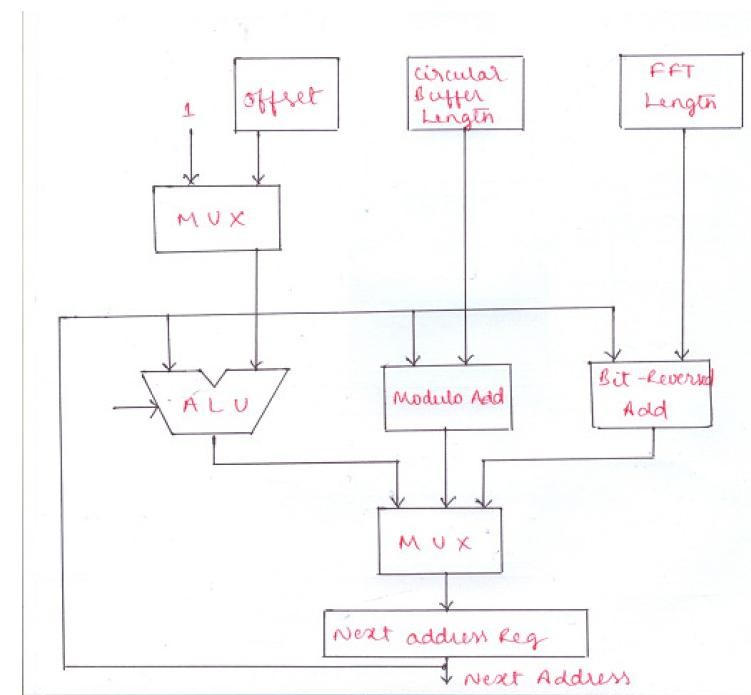 1
Offset
Circular
Buffer
Length
FFT
Length
MUX
ALU
Modulo Add
Bit-Reversed
Add
MUX
Next address Reg
Next Address